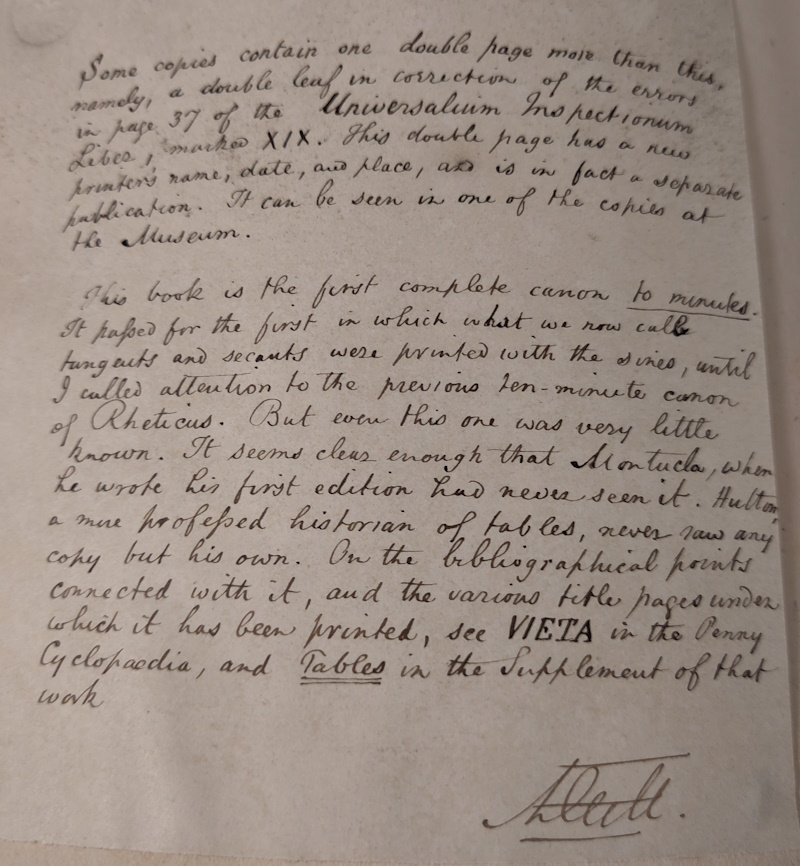 Some copies contain one double page more than this,
namely, a double leaf in correction of the errors
in page 37 of the Universalium Inspectionum
Liber, marked XIX. This double page has a new
printer's name, date, and place, and is in fact a separate
publication. It can be seen in one of the copies at
the Museum.
This book is the first complete canon to minutes.
It passed for the first in which what we now call
tangents and secants were printed with the sines, until
I called attention to the previous ten-minute canon
of Rheticus. But even this one was very little
known. It seems clear enough that Montucla, when
he wrote his first edition had never seen it. Hutton,
a mere professed historian of tables, never saw any
copy but his own. On the bibliographical points
connected with it, and the various title pages under
which it has been printed, see VIETA in the Penny
Cyclopaedia, and Tables in the Supplement of that
work